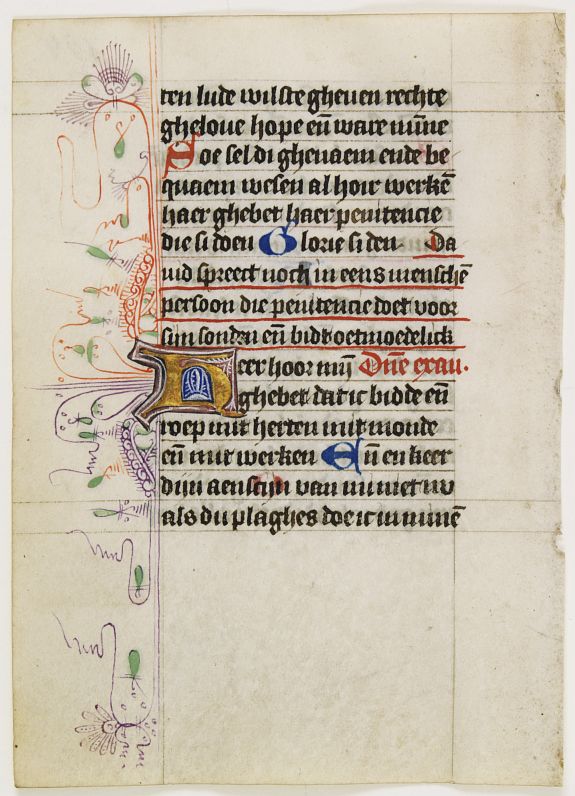 ten lude wilste gheuen rechte
gheloue hope en̄ ware mīne
Soe sel di ghenaem ende be
quaem wesen al hoir werkē
haer ghebet haer penitencie
die si doen Glorie si den Da
uid spreect noch in eens menschē
persoon die penitencie doet voor
sijn sonden en̄ bidt oetmoedelick
eer hoor mijn Dn̄e exau.
ghebet dat ic bidde en̄
roep mit herten mit monde
en̄ mit werken En̄ en keer
dijn aenscijn van mi niet uv
als du plaghes doe ic in minē